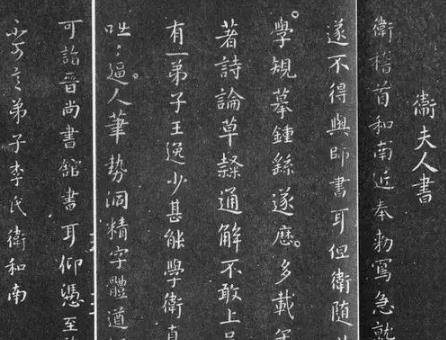 衛夫人書
衛稽首和南近奉勅寫急就
遂不得與師書耳但衛隨
學規摹鍾繇遂歷多載
著詩論草隸通解不敢上
有一弟子王逸少甚能學衛真
咄咄逼人筆勢洞精字體遒
可詣晉尚書館書耳仰憑至
弟子李氏衛和南